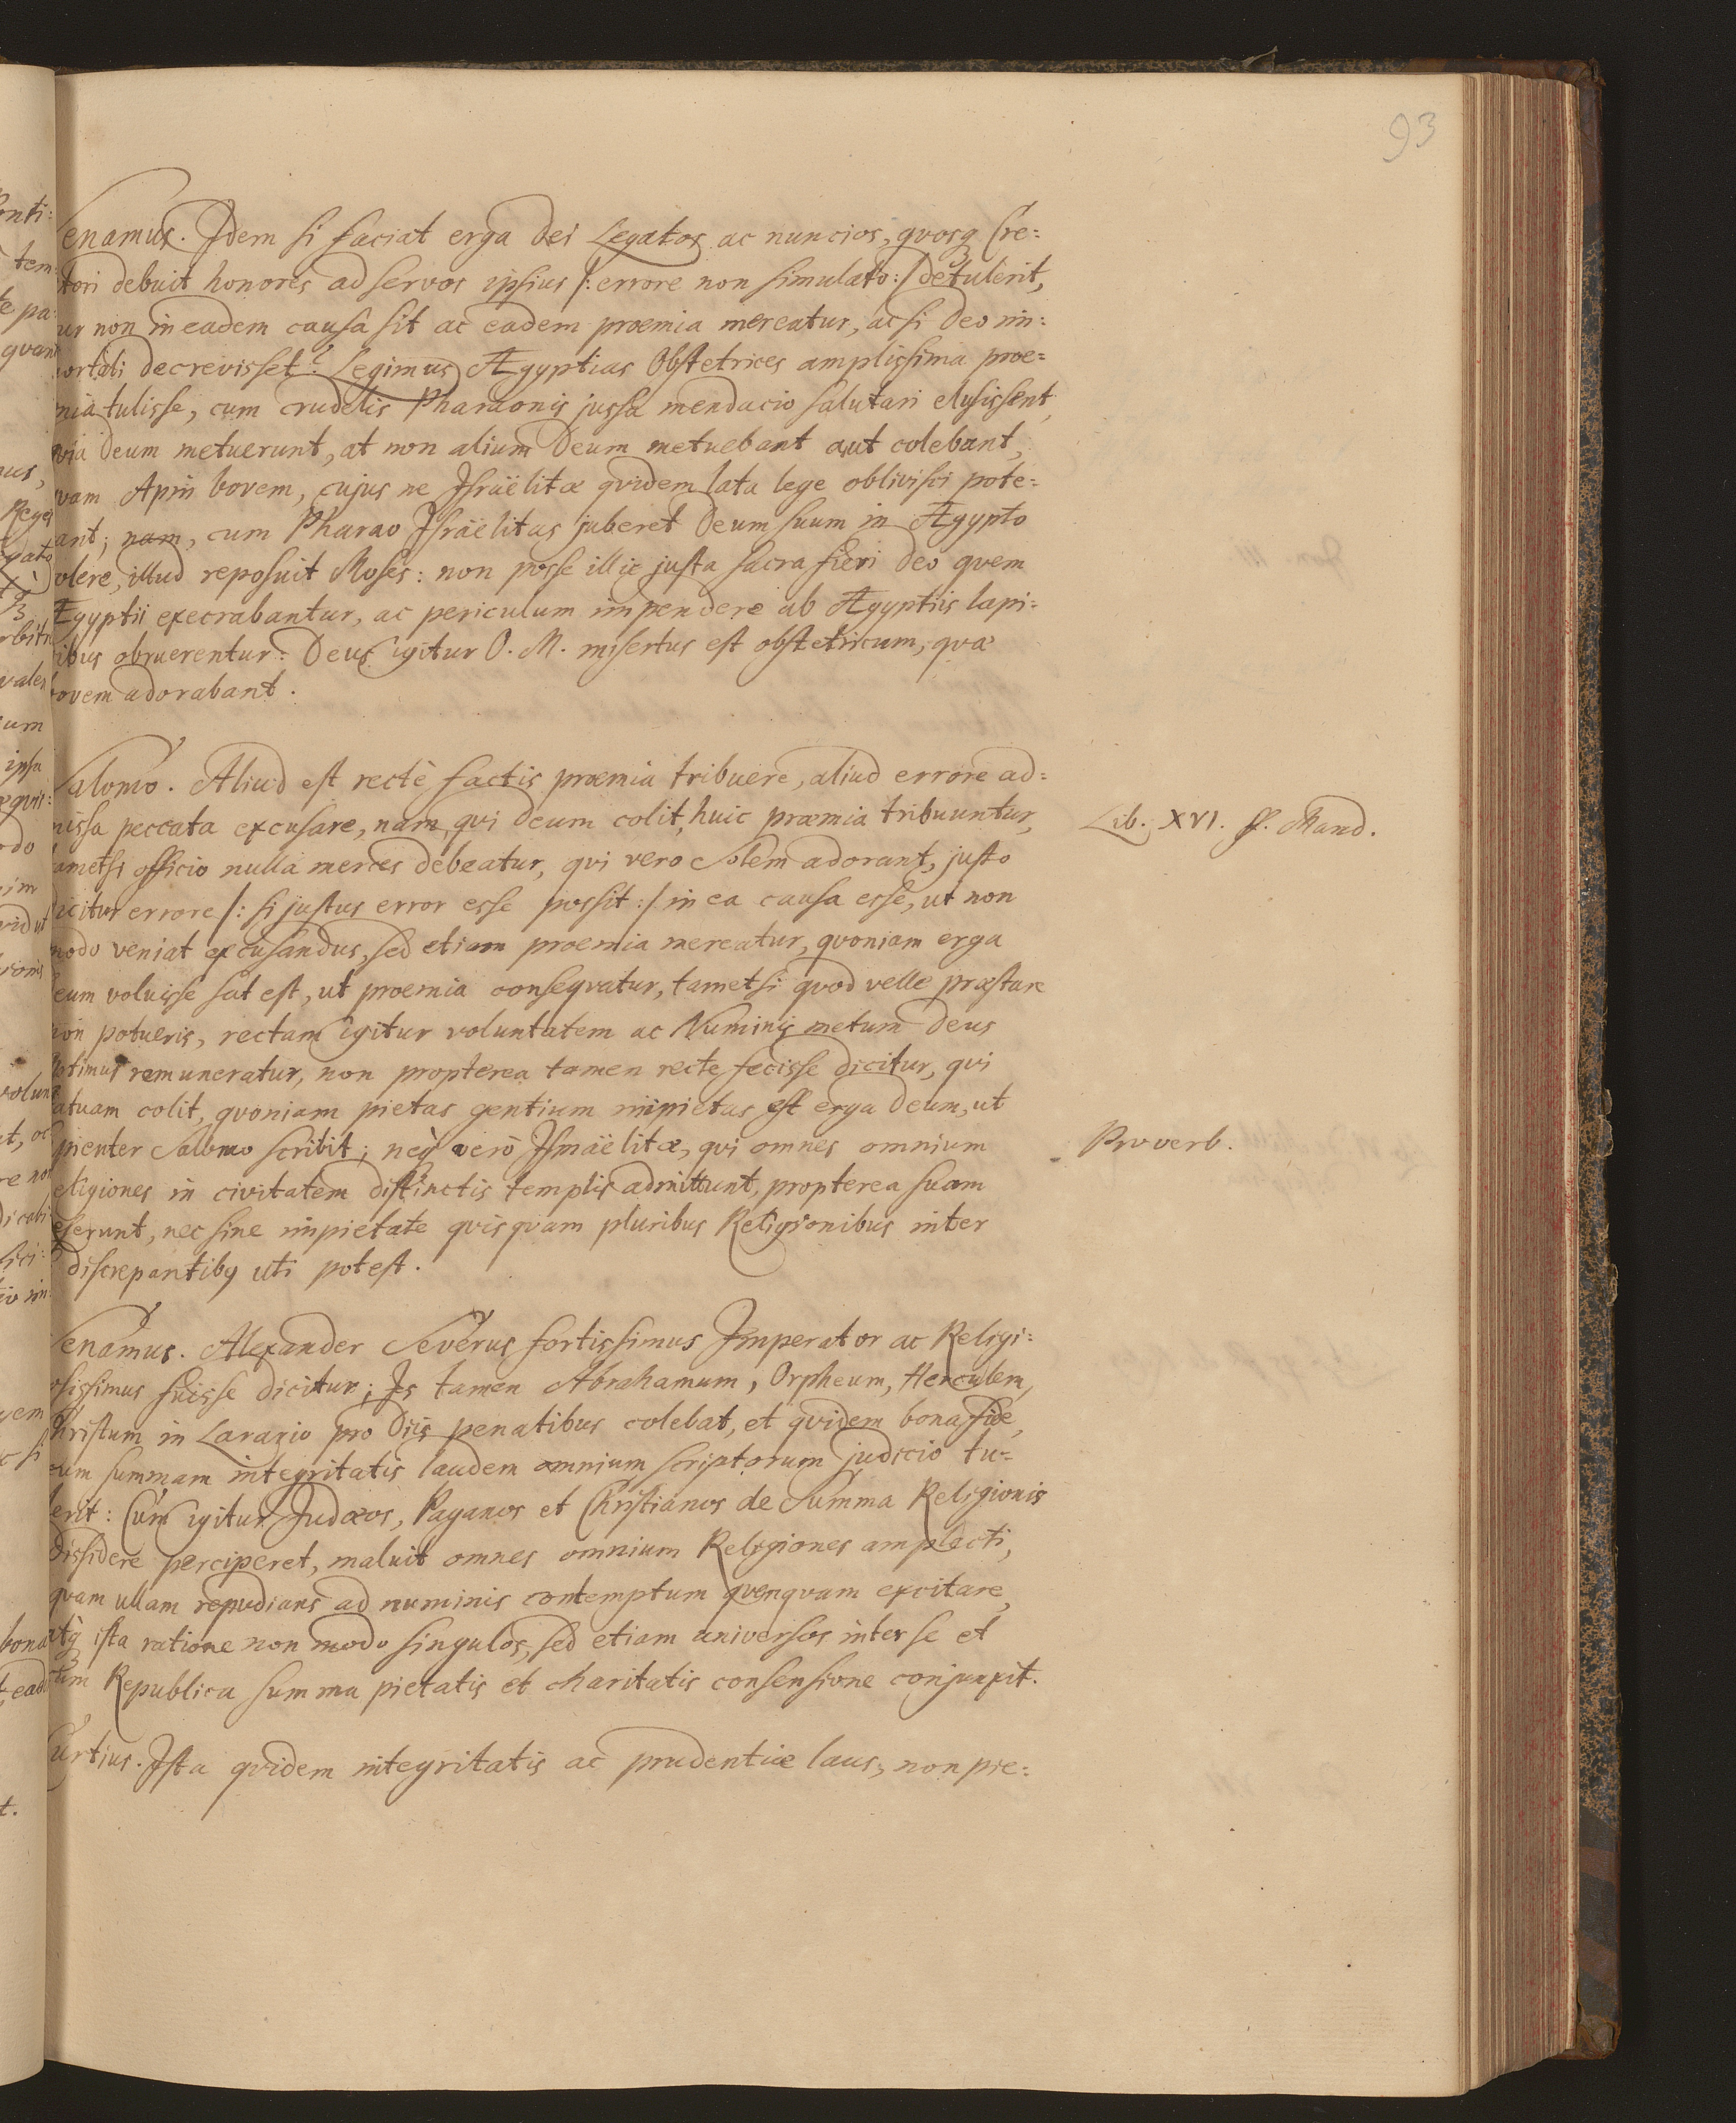 93
Senamus. Idem si faciat erga Dei Legatos ac nuncios, qvosq Cre:
tori debuit honores ad servos ipsius /: errore non simulato :/ detulerit,
ur non in eadem causa sit ac eadem proemia mereatur, ac si Deo im:
ortali decrevisset? Legimus Ægyptias Obstetrices amplissima proe=
mia tulisse, cum crudelis Pharaonis jussa mendacio salutari elusissent,
via Deum metuerunt, at non alium Deum metuebant aut colebant,
vam Apin bovem, cujus ne Israëlitæ qvidem lata lege oblivisci pote=
ant; nam, cum Pharao Israëlitas juberet Deum suum in Ægypto
olere, illud reposuit Moses: non posse illic justa sacra fieri Deo qvem
Ægyptii execrabantur, ac periculum impendere ab Ægyptiis lapi=
ibus obruerentur: Deus igitur O. M. misertus est obstetricum, qvæ
bovem adorabant.
Salomo. Aliud est rectè factis præmia tribuere, aliud errore ad=
missa peccata excusare, nam qvi Deum colit, huic præmia tribuuntur,
Lib. XVI. ff. Mand.
tametsi officio nulla merces debeatur, qvi vero Solem adorant, justo
dicitur errore /: si justus error esse possit :/ in ea causa esse, ut non
modo veniat excusandus, sed etiam proemia mereatur, qvoniam erga
Deum voluisse sat est, ut proemia conseqvatur, tametsi qvod velle præstare
non potueris, rectam igitur voluntatem ac Numinis metum Deus
optimus remuneratur, non propterea tamen recte fecisse dicitur, qvi
tatuam colit, qvoniam pietas gentium impietas est erga Deum, ut
pienter Salomo scribit; neq vero Ismaëlitæ, qvi omnes omnium
Proverb.
eligiones in civitatem distinctis templis admittunt, propterea suam
eserunt, nec sine impietate qvisqvam pluribus Religionibus inter
discrepantibq uti potest.
Senamus. Alexander Severus fortissimus Imperator ac Religi=
osissimus fuisse dicitur; Is tamen Abrahamum, Orpheum, Herculem,
Christum in Larario pro Diis penatibus colebat, et qvidem bona fide,
cum summam integritatis laudem omnium scriptorum judicio tu=
lerit: Cum igitur Judæos, Paganos et Christianos de Summa Religionis
dissidere perciperet, maluit omnes omnium Religiones amplecti,
qvam ullam repudians ad numinis contemptum qvenqvam excitare,
atq ista ratione non modo singulos, sed etiam universos inter se et
cum Republica summa pietatis et charitatis consensione conjunxit.
Curtius. Ista qvidem integritatis ac prudentiæ laus, non pie=